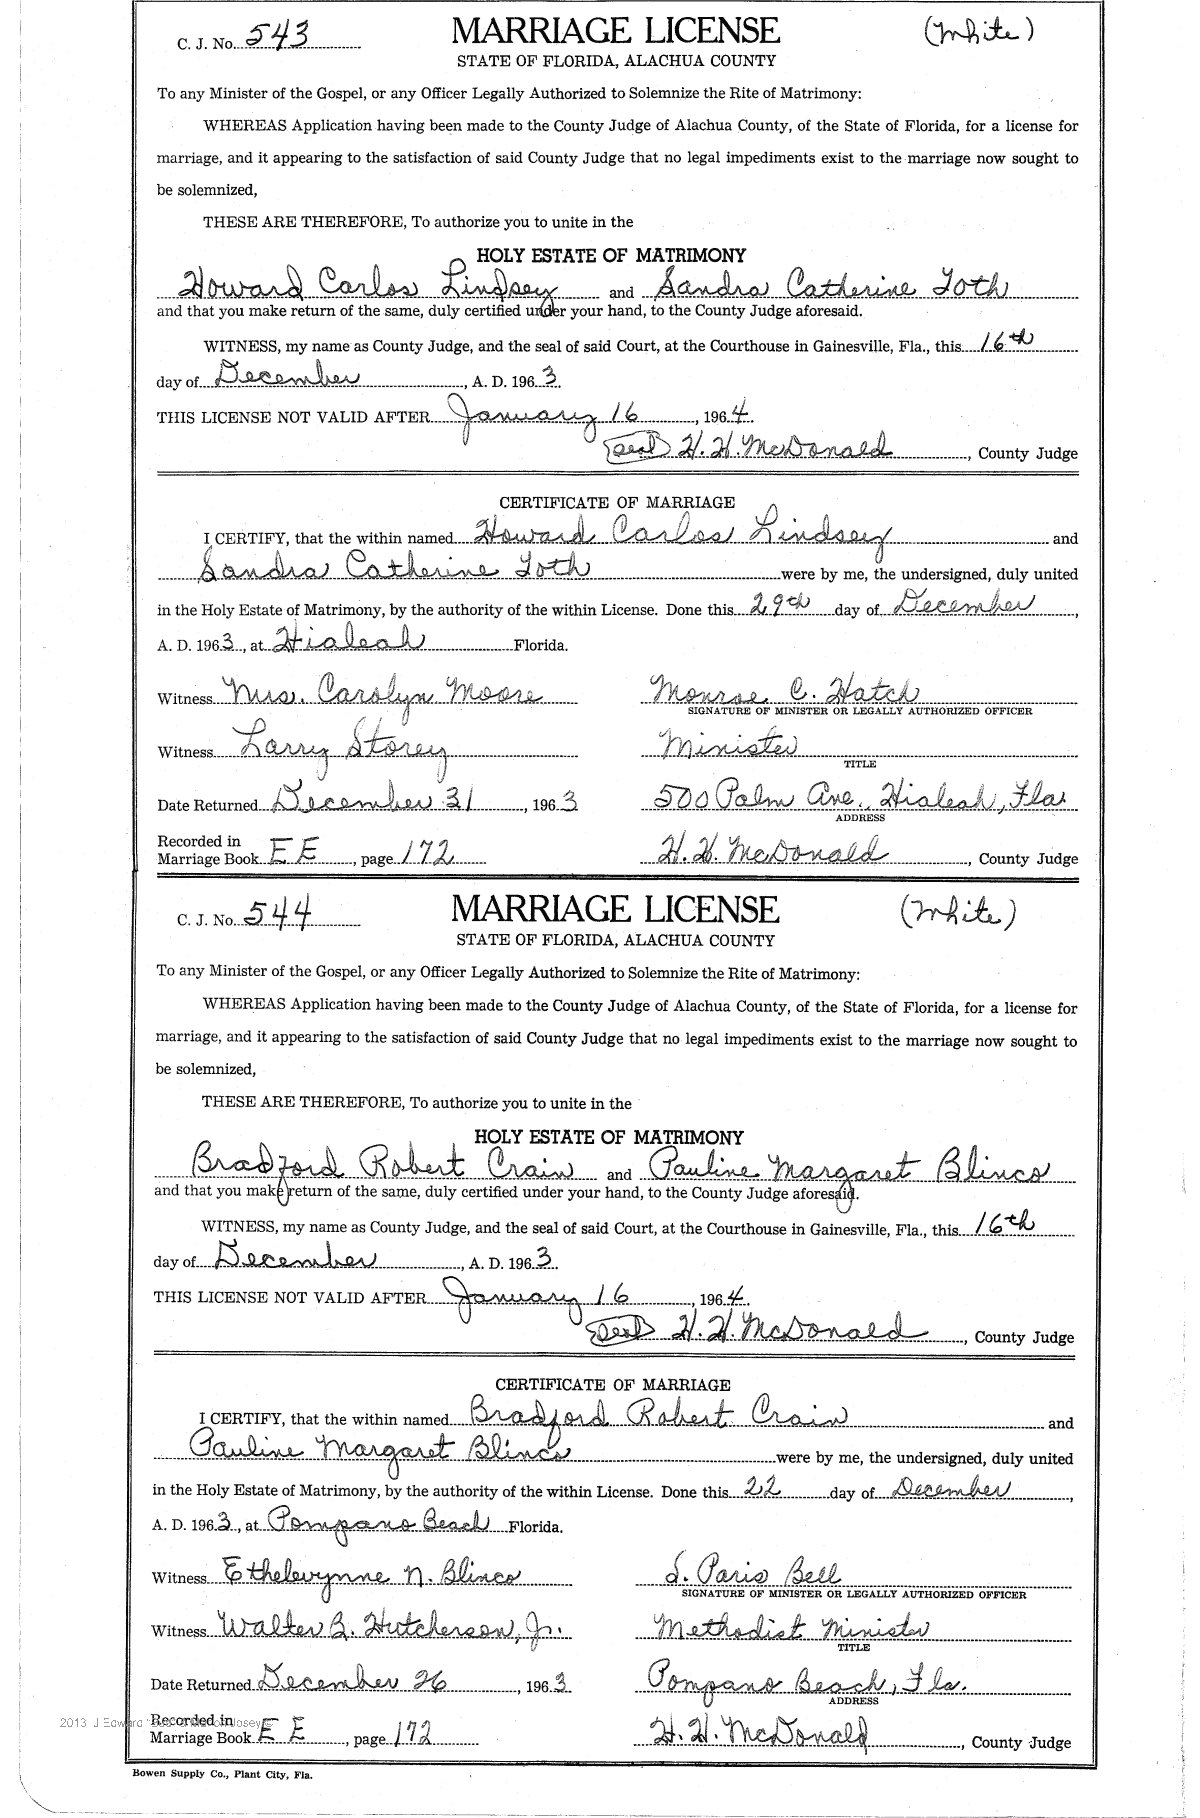 C. J. No. 543 MARRIAGE LICENSE (White)
STATE OF FLORIDA, ALACHUA COUNTY
To any Minister of the Gospel, or any Officer Legally Authorized to Solemnize the Rite of Matrimony:
WHEREAS Application having been made to the County Judge of Alachua County, of the State of Florida, for a license for
marriage, and it appearing to the satisfaction of said County Judge that no legal impediments exist to the marriage now sought to
be solemnized,
THESE ARE THEREFORE, To authorize you to unite in the
HOLY ESTATE OF MATRIMONY
Howard Carlos Lindsey and Sandra Catherine Toth
and that you make return of the same, duly certified under your hand, to the County Judge aforesaid.
WITNESS, my name as County Judge, and the seal of said Court, at the Courthouse in Gainesville, Fla., this 16th
day of December, A. D. 1963.
THIS LICENSE NOT VALID AFTER January 16, 1964.
(Seal) H. H. McDonald, County Judge
CERTIFICATE OF MARRIAGE
I CERTIFY, that the within named Howard Carlos Lindsey and
Sandra Catherine Toth were by me, the undersigned, duly united
in the Holy Estate of Matrimony, by the authority of the within License. Done this 29th day of December,
A. D. 1963, at Hialeah Florida.
Witness Mrs. Carolyn Moore Monroe C. Hatch
SIGNATURE OF MINISTER OR LEGALLY AUTHORIZED OFFICER
Witness Larry Storey Minister
TITLE
Date Returned December 31, 1963 500 Palm Ave., Hialeah, Fla.
ADDRESS
Recorded in
Marriage Book EE, page 172 H. H. McDonald, County Judge
C. J. No. 544 MARRIAGE LICENSE (White)
STATE OF FLORIDA, ALACHUA COUNTY
To any Minister of the Gospel, or any Officer Legally Authorized to Solemnize the Rite of Matrimony:
WHEREAS Application having been made to the County Judge of Alachua County, of the State of Florida, for a license for
marriage, and it appearing to the satisfaction of said County Judge that no legal impediments exist to the marriage now sought to
be solemnized,
THESE ARE THEREFORE, To authorize you to unite in the
HOLY ESTATE OF MATRIMONY
Bradford Robert Crain and Pauline Margaret Blinco
and that you make return of the same, duly certified under your hand, to the County Judge aforesaid.
WITNESS, my name as County Judge, and the seal of said Court, at the Courthouse in Gainesville, Fla., this 16th
day of December, A. D. 1963.
THIS LICENSE NOT VALID AFTER January 16, 1964.
(Seal) H. H. McDonald, County Judge
CERTIFICATE OF MARRIAGE
I CERTIFY, that the within named Bradford Robert Crain and
Pauline Margaret Blinco were by me, the undersigned, duly united
in the Holy Estate of Matrimony, by the authority of the within License. Done this 22 day of December,
A. D. 1963, at Pompano Beach Florida.
Witness Ethelwynne N. Blinco S. Paris Bell
SIGNATURE OF MINISTER OR LEGALLY AUTHORIZED OFFICER
Witness Walter B. Hutcherson, Jr. Methodist Minister
TITLE
Date Returned December 26 1963 Pompano Beach, Fla.
ADDRESS
2013 J Edward Josey©
Recorded in
Marriage Book EE, page 172 H. H. McDonald, County Judge
Bowen Supply Co., Plant City, Fla.